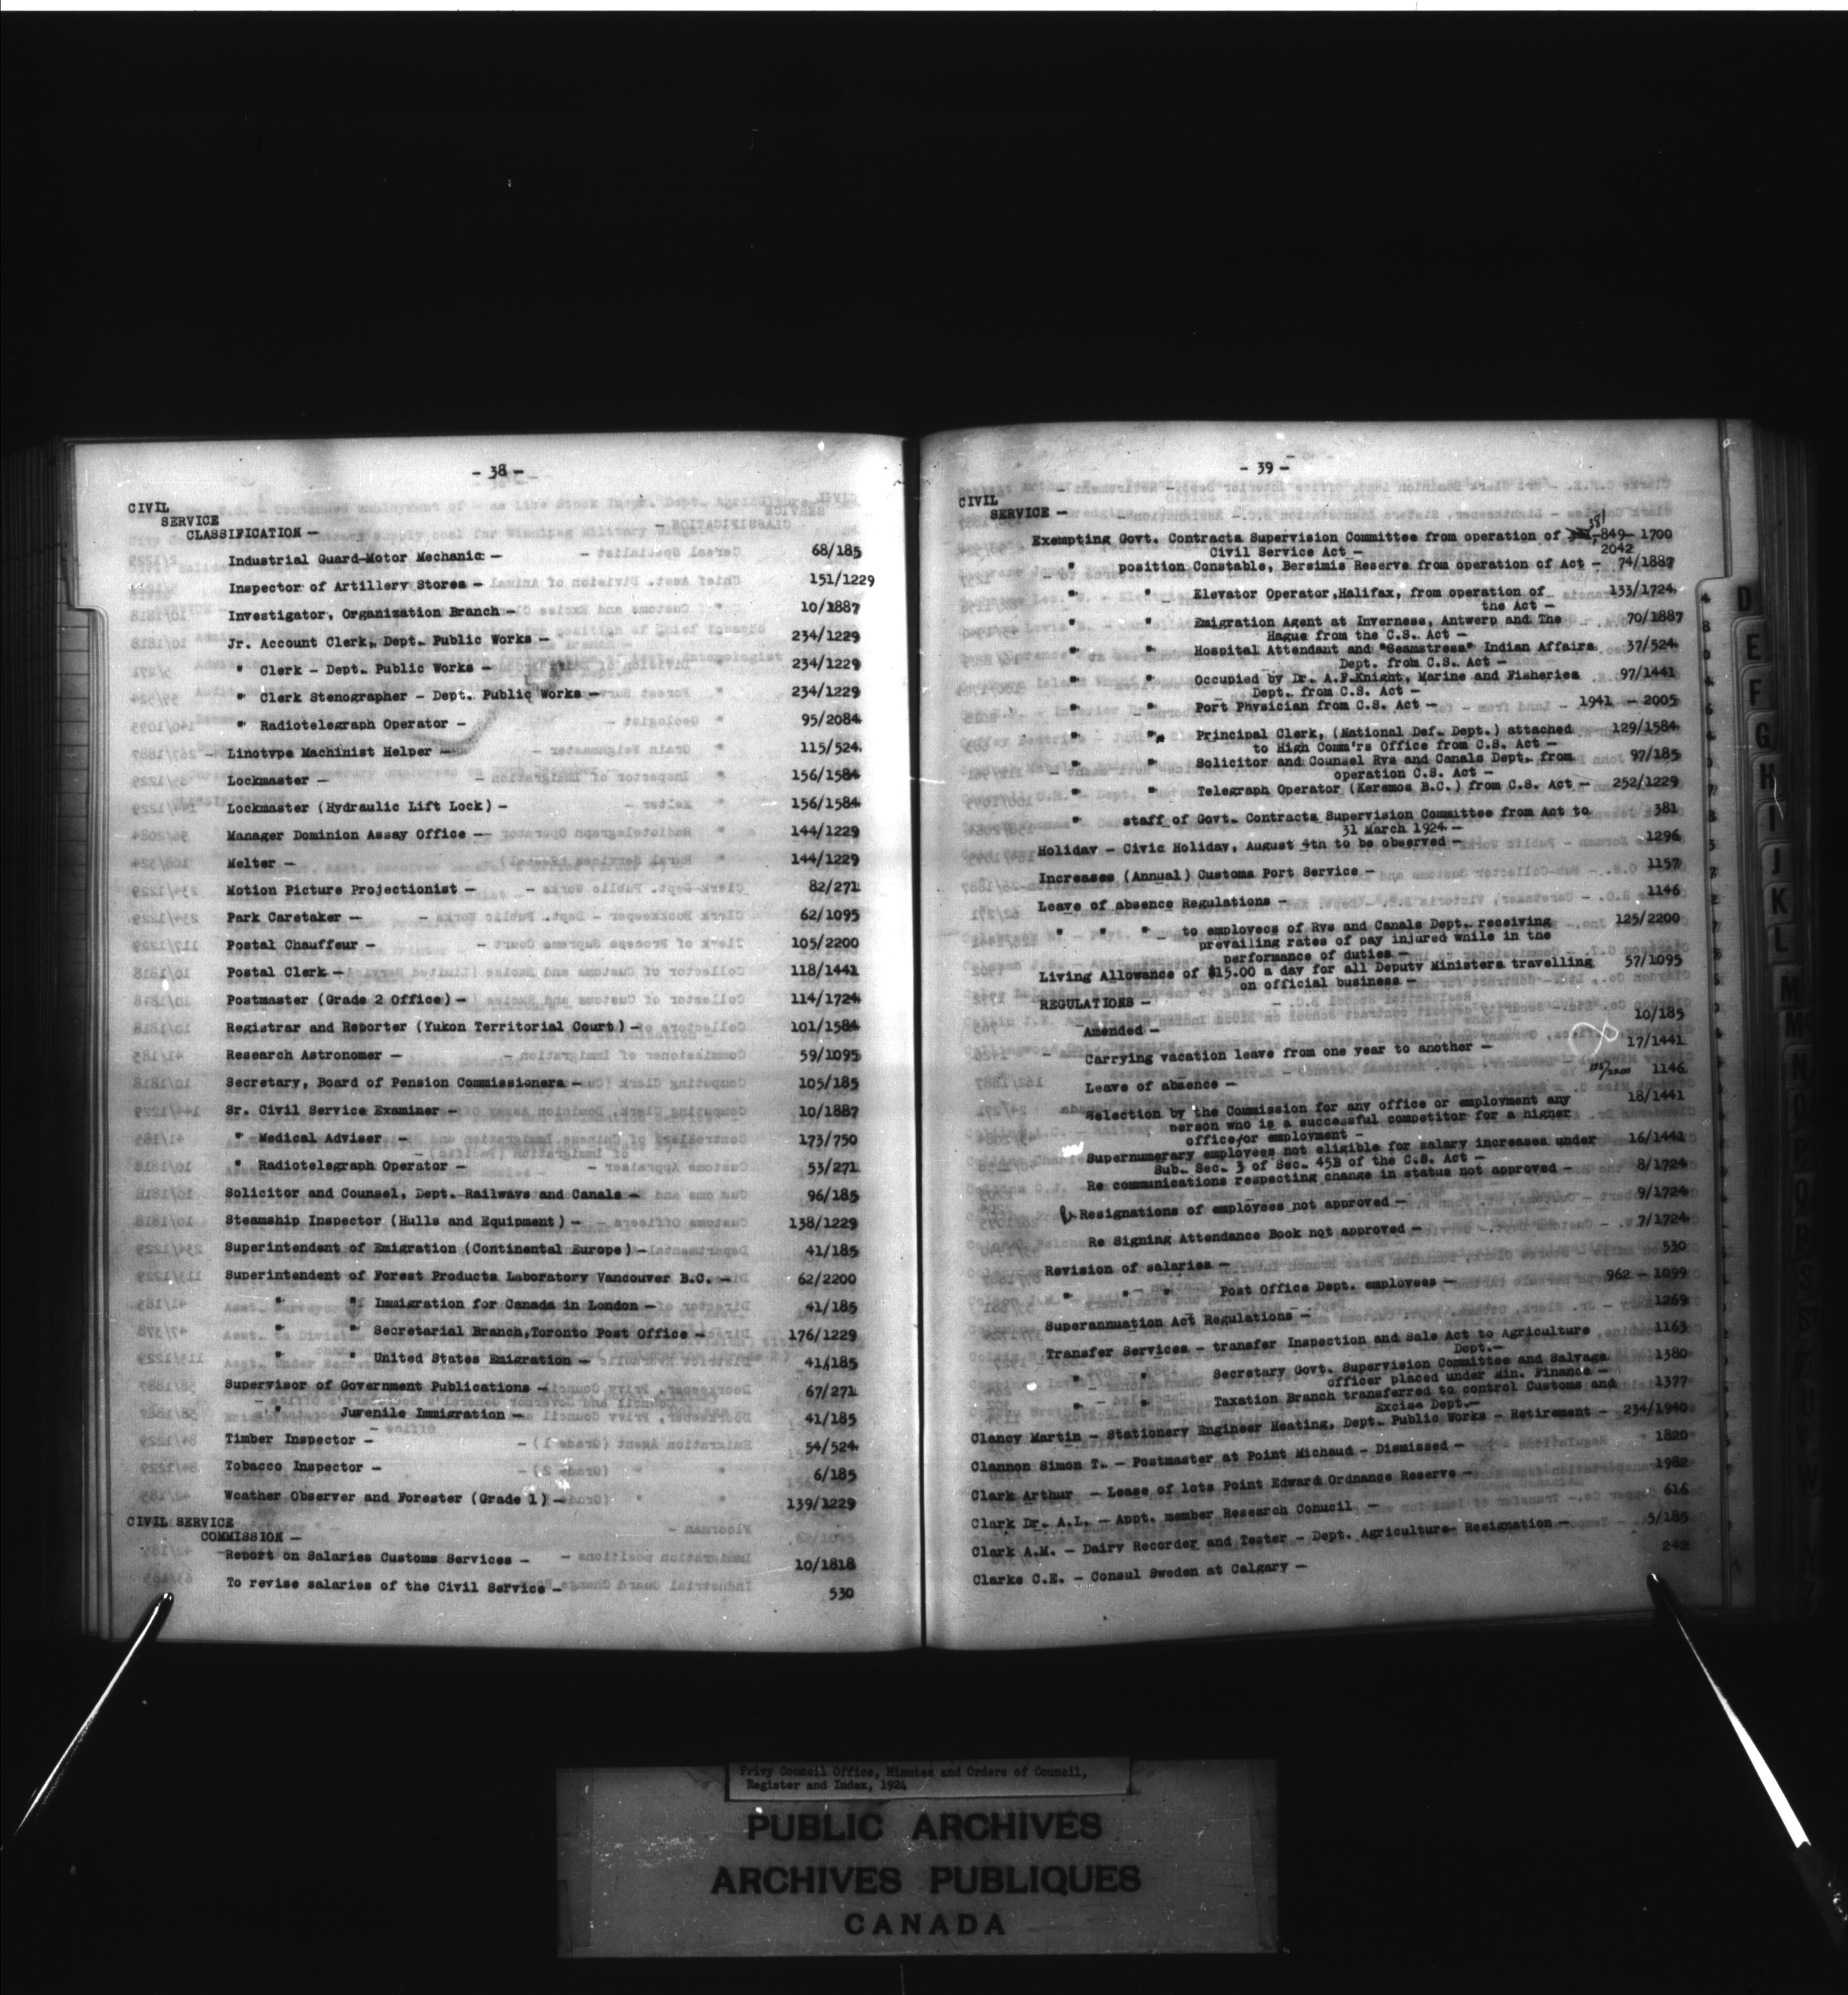 - 38 -
CIVIL
SERVICE
CLASSIFICATION -
Industrial Guard-Motor Mechanic - 68/185
Inspector of Artillery Stores - 151/1229
Investigator, Organization Branch - 10/1887
Jr. Account Clerk, Dept. Public Works - 234/1229
" Clerk - Dept. Public Works - 234/1229
" Clerk Stenographer - Dept. Public Works - 234/1229
" Radiotelegraph Operator - 95/2084
Linotype Machinist Helper - 115/524
Lockmaster - 156/1584
Lockmaster (Hydraulic Lift Lock) - 156/1584
Manager Dominion Assay Office - 144/1229
Melter - 144/1229
Motion Picture Projectionist - 82/271
Park Caretaker - 62/1095
Postal Chauffeur - 105/2200
Postal Clerk - 118/1441
Postmaster (Grade 2 Office) - 114/1724
Registrar and Reporter (Yukon Territorial Court) - 101/1584
Research Astronomer - 59/1095
Secretary, Board of Pension Commissioners - 105/185
Sr. Civil Service Examiner - 10/1887
" Medical Adviser - 173/750
" Radiotelegraph Operator - 53/271
Solicitor and Counsel, Dept. Railways and Canals - 96/185
Steamship Inspector (Hulls and Equipment) - 138/1229
Superintendent of Emigration (Continental Europe) - 41/185
Superintendent of Forest Products Laboratory Vancouver B.C. - 62/2200
" " Immigration for Canada in London - 41/185
" " Secretarial Branch,Toronto Post Office - 176/1229
" " United States Emigration - 41/185
Supervisor of Government Publications - 67/271
" Juvenile Immigration - 41/185
Timber Inspector - 54/524
Tobacco Inspector - 6/185
Weather Observer and Forester (Grade 1) - 139/1229
CIVIL SERVICE
COMMISSION -
Report on Salaries Customs Services - 10/1818
To revise salaries of the Civil Service - 530
- 39 -
CIVIL
SERVICE -
381
Exempting Govt. Contracts Supervision Committee from operation of -849- 1700
Civil Service Act - 2042
" position Constable, Bersimis Reserve from operation of Act - 74/1887
" " Elevator Operator,Halifax, from operation of 133/1724
the Act -
" " Emigration Agent at Inverness, Antwerp and The 70/1887
Hague from the C.S. Act -
" " Hospital Attendant and "Seamstress" Indian Affairs 37/524
Dept. from C.S. Act -
" " Occupied by Dr. A.F.Knight, Marine and Fisheries 97/1441
Dept. from C.S. Act -
" " Port Physician from C.S. Act - 1941 - 2005
" " Principal Clerk, (National Def. Dept.) attached 129/1584
to High Comm'rs Office from C.S. Act -
" " Solicitor and Counsel Rys and Canals Dept. from 97/185
operation C.S. Act -
" " Telegraph Operator (Keremos B.C.) from C.S. Act - 252/1229
" staff of Govt. Contracts Supervision Committee from Act to 381
31 March 1924 -
Holiday - Civic Holiday, August 4th to be observed - 1296
Increases (Annual) Customs Port Service - 1157
Leave of absence Regulations - 1146
" " " to employees of Rys and Canals Dept. receiving 125/2200
prevailing rates of pay injured while in the
performance of duties -
Living Allowance of $15.00 a day for all Deputy Ministers travelling 57/1095
on official business -
REGULATIONS -
Amended - 10/185
Carrying vacation leave from one year to another - 17/1441
Leave of absence - 1146
Selection by the Commission for any office or employment any 18/1441
person who is a successful competitor for a higher
office/or employment -
Supernumerary employees not eligible for salary increases under 16/1441
Sub. Sec. 3 of Sec. 45B of the C.S. Act -
Re communications respecting change in status not approved - 8/1724
Resignations of employees not approved - 9/1724
Re Signing Attendance Book not approved - 7/1724
Revision of salaries - 530
" " " Post Office Dept. employees - 962 - 1099
Superannuation Act Regulations - 1269
Transfer Services - transfer Inspection and Sale Act to Agriculture 1163
Dept.-
" " Secretary Govt. Supervision Committee and Salvage 1380
officer placed under Min. Finance -
" " Taxation Branch transferred to control Customs and 1377
Excise Dept.-
Clancy Martin - Stationery Engineer Heating, Dept. Public Works - Retirement - 234/1940
Clannon Simon T. - Postmaster at Point Michaud - Dismissed - 1820
Clark Arthur - Lease of lots Point Edward Ordnance Reserve - 1982
Clark Dr. A.L. - Appt. member Research Cohucil - 616
Clark A.M. - Dairy Recorder and Tester - Dept. Agriculture- Resignation - 5/185
Clarke C.E. - Consul Sweden at Calgary - 242
D
E
F
G
H
I
J
K
L
M
Privy Council Office, Minutes and Orders of Council,
Register and Index, 1924
PUBLIC ARCHIVES
ARCHIVES PUBLIQUES
CANADA